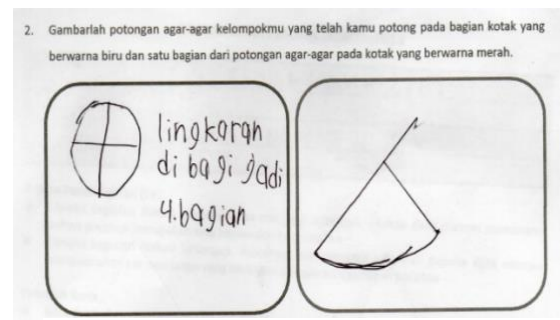 2. Gambarlah potongan agar-agar kelompokmu yang telah kamu potong pada bagian kotak yang
berwarna biru dan satu bagian dari potongan agar-agar pada kotak yang berwarna merah.
lingkaran
di bagi jadi
4.bagian